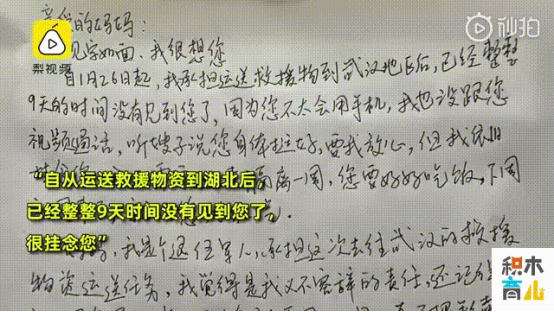 亲爱的妈妈:
见字如面、我很想您
自1月26日起,我承担运送救援物到武汉地区后,已经整整
9天的时间没有见到您了,因为您不太会用手机,我也没跟您
视频通话,听嫂子说您身体挺好,要我放心,但我依旧
隔离一周,您要好好吃饭,下周
我是个退伍军人,承担这次去往武汉的救援
物资运送任务,我觉得是我义不容辞的责任,还记得
梨视频
秒拍
“自从运送救援物资到湖北后,
已经整整9天时间没有见到您了。
很挂念您”
积木
育儿